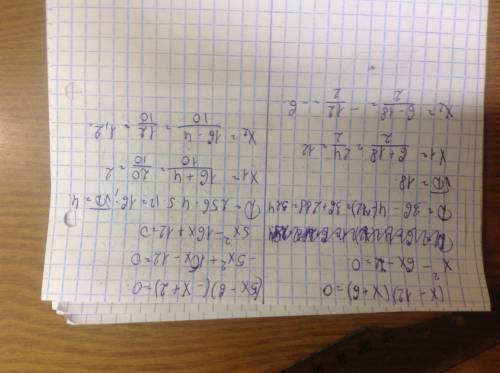 (x-12)(x+6)=0
x² - 6x - 72=0
D = 36 - 4·(-72) = 36+288=324
√D = 18
x₁ = (6+18)/2 = 24/2 = 12
x₂ = (6-18)/2 = -12/2 = -6
(5x-6)(-x+2)=0
-5x²+16x-12=0
5x²-16x+12=0
D=256-4·5·12=16; √D=4
x₁ = (16+4)/10 = 20/10 = 2
x₂ = (16-4)/10 = 12/10 = 1,2.